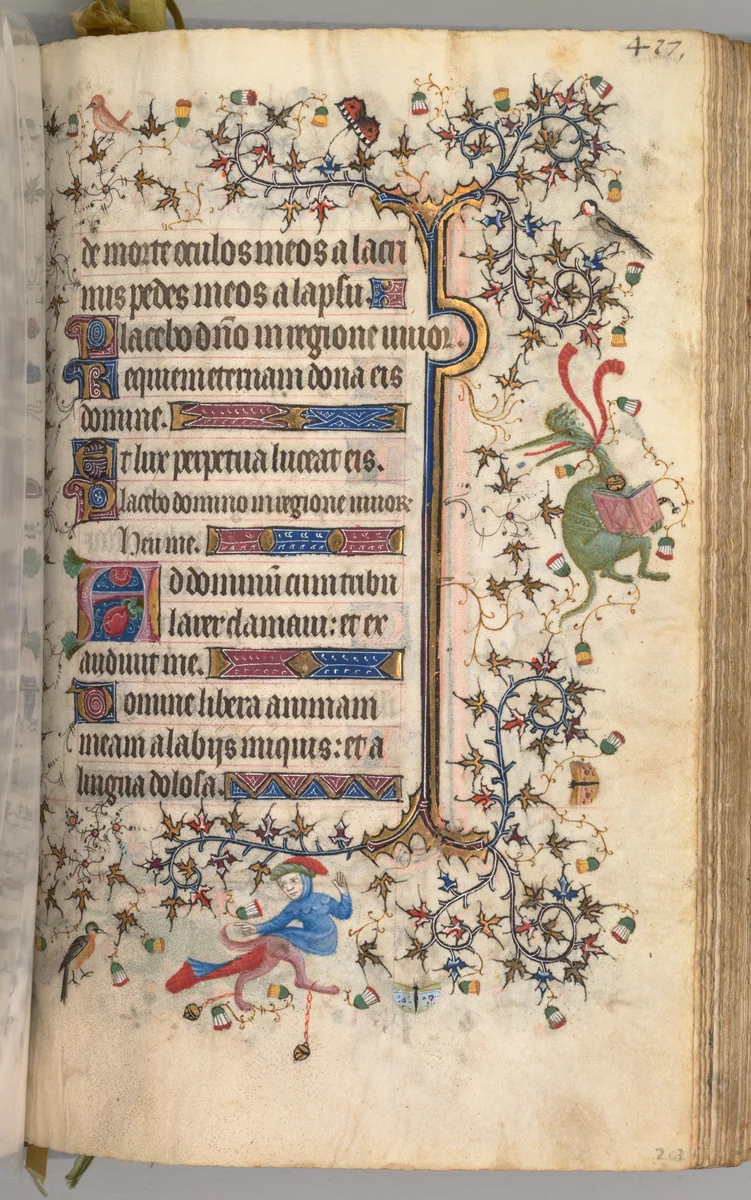 427,
de morte oculos meos a lacri
mis pedes meos a lapsu.
Placebo dño in regione uiuor.
Requiem eternam dona eis
domine.
Et lux perpetua luceat eis.
Placebo domino in regione uiuor
Heu me.
Ad dominũ cum tribu
larer clamaui: et ex
audiuit me.
Domine libera animam
meam a labijs iniquis: et a
lingua dolosa.